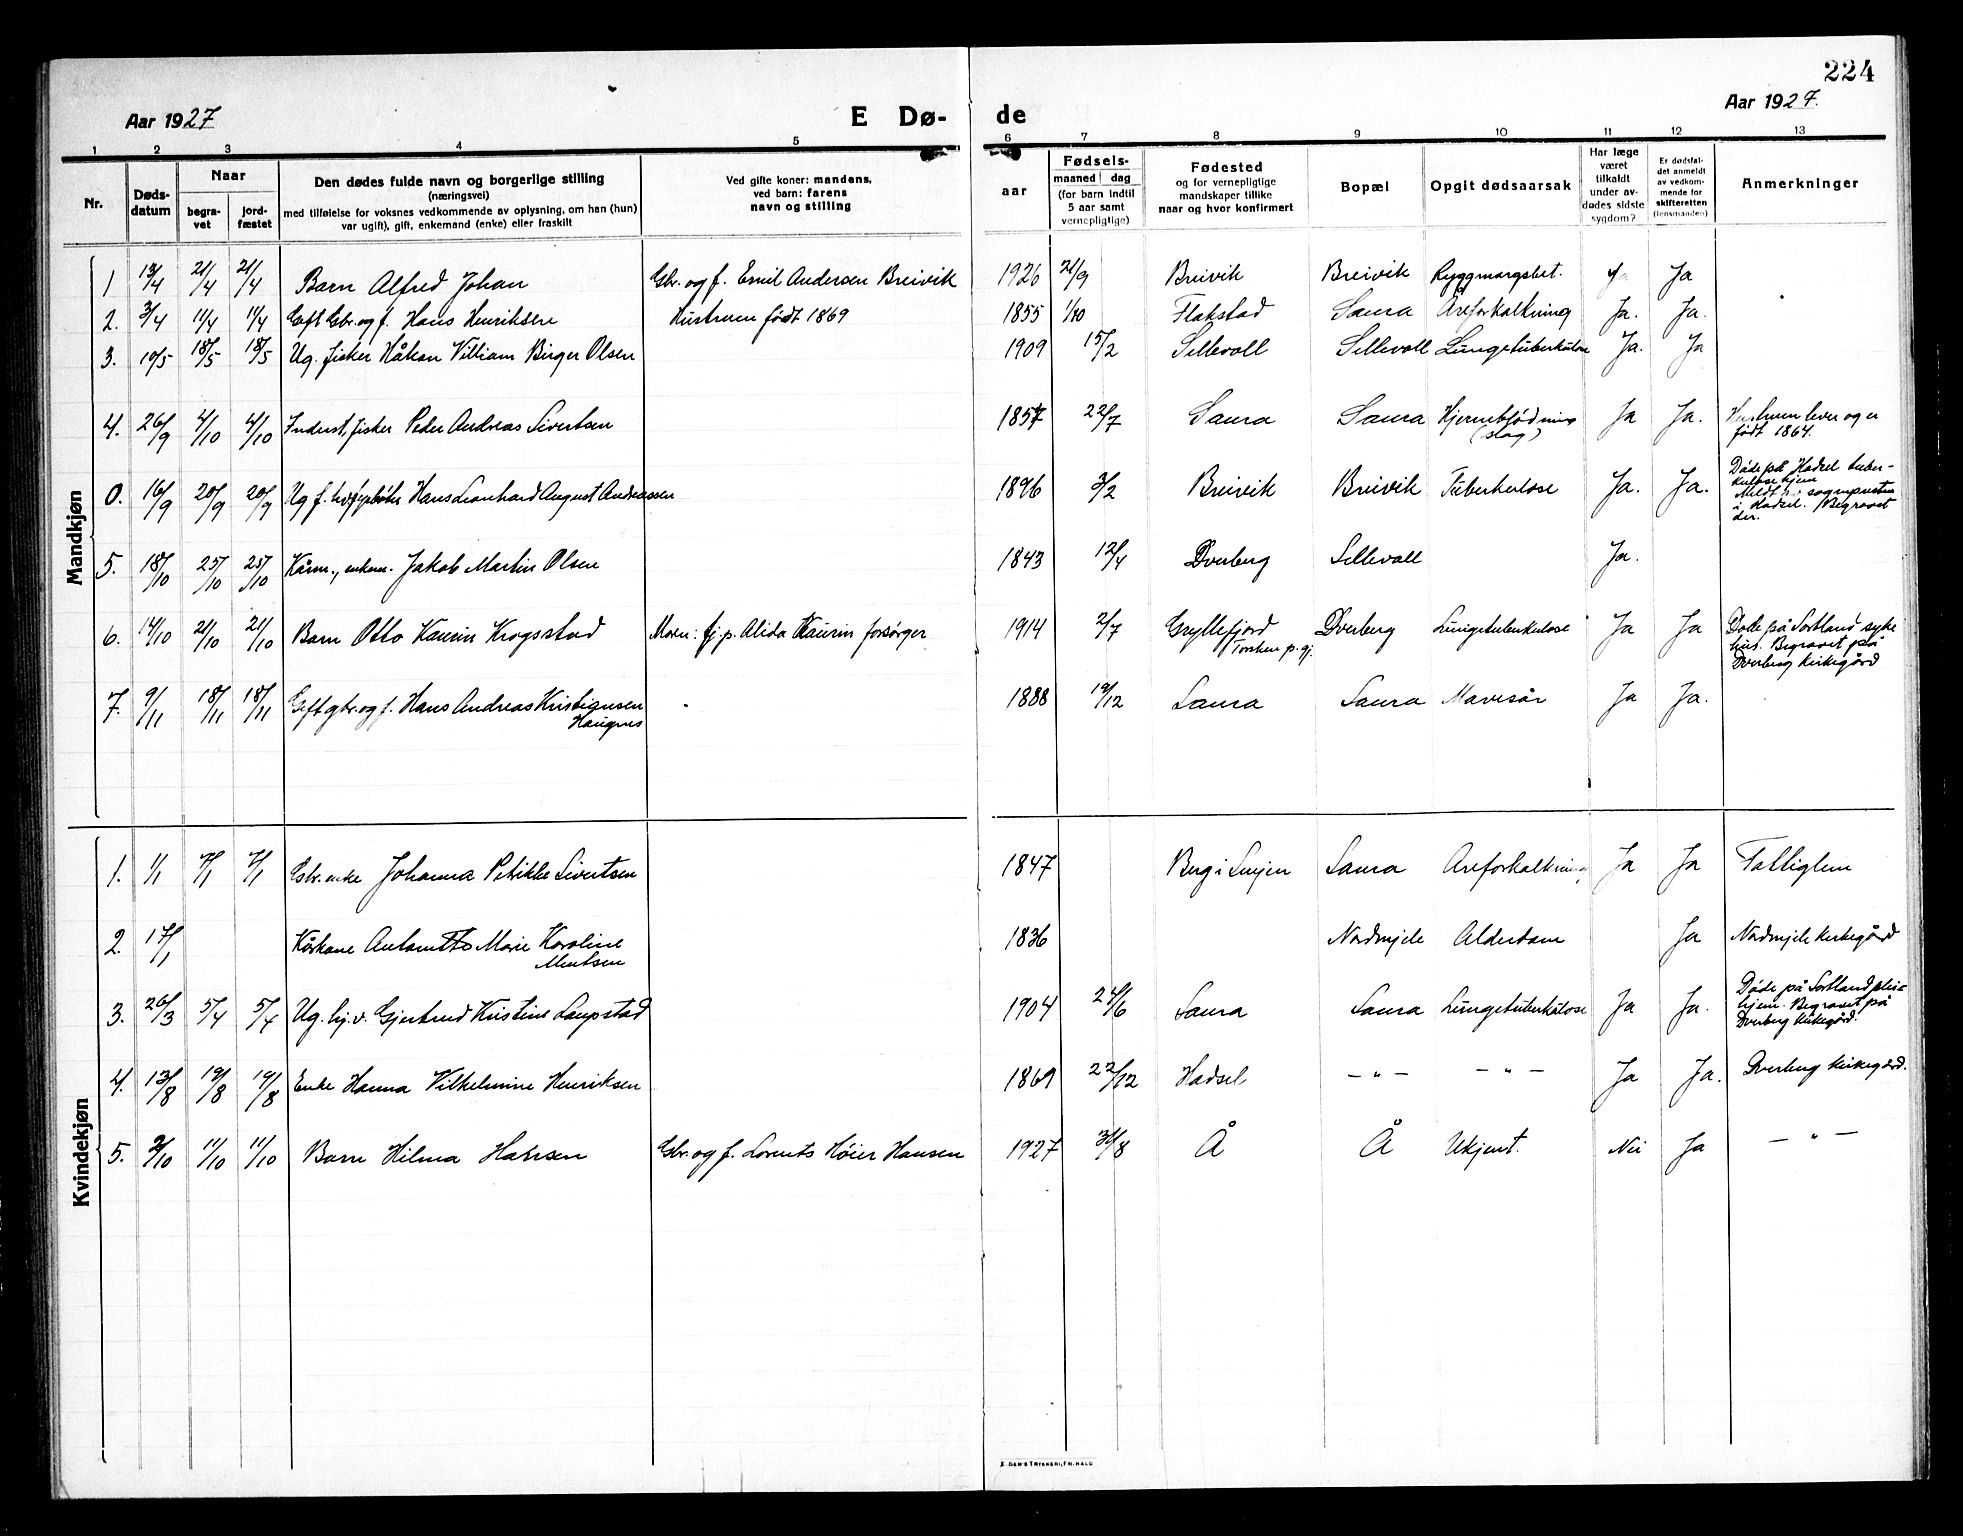 224
Aar 1927
E Dø-
de
Aar 1927.
1 2 3 4 5 6 7 8 9 10 11 12 13
Nr.
Døds-
datum
Naar
begra-
vet
jord-
fæstet
Den dødes fulde navn og borgerlige stilling
(næringsvei)
med tilføielse for voksnes vedkommende av oplysning, om han (hun)
var ugift), gift, enkemand (enke) eller fraskilt
Ved gifte koner: mandens,
ved barn: farens
navn og stilling
aar
Fødsels-
maaned dag
(for barn indtil
5 aar samt
vernepligtige)
Fødested
og for vernepligtige
mandskaper tillike
naar og hvor konfirmert
Bopæl
Opgit dødsaarsak
Har læge
været
tilkaldt
under av-
dødes sidste
sygdom?
Er dødsfal-
det anmeldt
av vedkom-
mende for
skifteretten
(lensmanden)
Anmerkninger
Mandkjøn
1 13/4 21/4 21/4 Barn Alfred Johan Gbr. og f. Emil Andersen Breivik 1926 21/9 Breivik Breivik Ryggmargsbet. Ja
2. 3/4 11/4 11/4 Gift Gbr. og f. Hans Henriksen Hustruen født 1869 1855 1/10 Flakstad Saura Åreforkalkning Ja. Ja.
3. 10/5 18/5 18/5 Ug. fisker Håkon Villiam Birger Olsen 1909 15/2 Sellevoll Sellevoll Lungetuberkulose Ja. Ja
4. 26/9 4/10 4/10 Inderst, fisker Peder Andreas Sivertsen 1857 22/7 Saura Saura Hjerneblødning
(slag) Ja Ja. Hustruen lever og er
født 1864.
0. 16/9 20/9 20/9 Ug. f. Hans Leonhard August Andreassen 1896 3/2 Breivik Breivik Tuberkulose Ja. Ja. Døde på Hadsel tuber-
kulosehjem
Meldt sognepresten
i Hadsel. Begravet
der.
5. 18/10 25/10 25/10 Kårm., enkem. Jakob Martin Olsen 1843 12/4 Dverberg Sellevoll Ja.
6. 14/10 21/10 21/10 Barn Otto Kaurin Krogstad Moren: tj. p. Alida Kaurin forsørger 1914 2/7 Gryllefjord
Torsken p.gj. Dverberg Lungetuberkulose Ja Ja Døde på Sortland syke
hus. Begravet på
Dverberg kirkegård
7. 9/11 18/11 18/11 Gift gbr. og f. Hans Andreas Kristiansen
Haugnes 1888 19/12 Saura Saura Mavesår Ja Ja.
Kvindekjøn
1. 1/1 7/1 7/1 Gbr. enke Johanna Petrikke Sivertsen 1847 Berg i Senjen Saura Åreforkalkning Ja Ja Fattiglem
2. 17/1 Kårkone Marie Karoline
1836 Nordmjele Alderdom Ja Nordmjele kirkegård
3. 26/3 5/4 5/4 Ug. hj.v. Gjertrud Kristine Laupstad 1904 24/6 Saura Saura Lungetuberkulose Ja Ja. Døde på Sortland pleie
hjem. Begravet på
Dverberg kirkegård.
4. 13/8 19/8 19/8 Enke Hanna Vilhelmine Henriksen 1869 22/12 Hadsel — " — — " — Ja Ja. Dverberg kirkegård.
5. 2/10 11/10 11/10 Barn Hilma Hansen Gbr. og f. Lorents Høier Hansen 1927 30/8 Å Å Ukjent. Nei Ja — " —